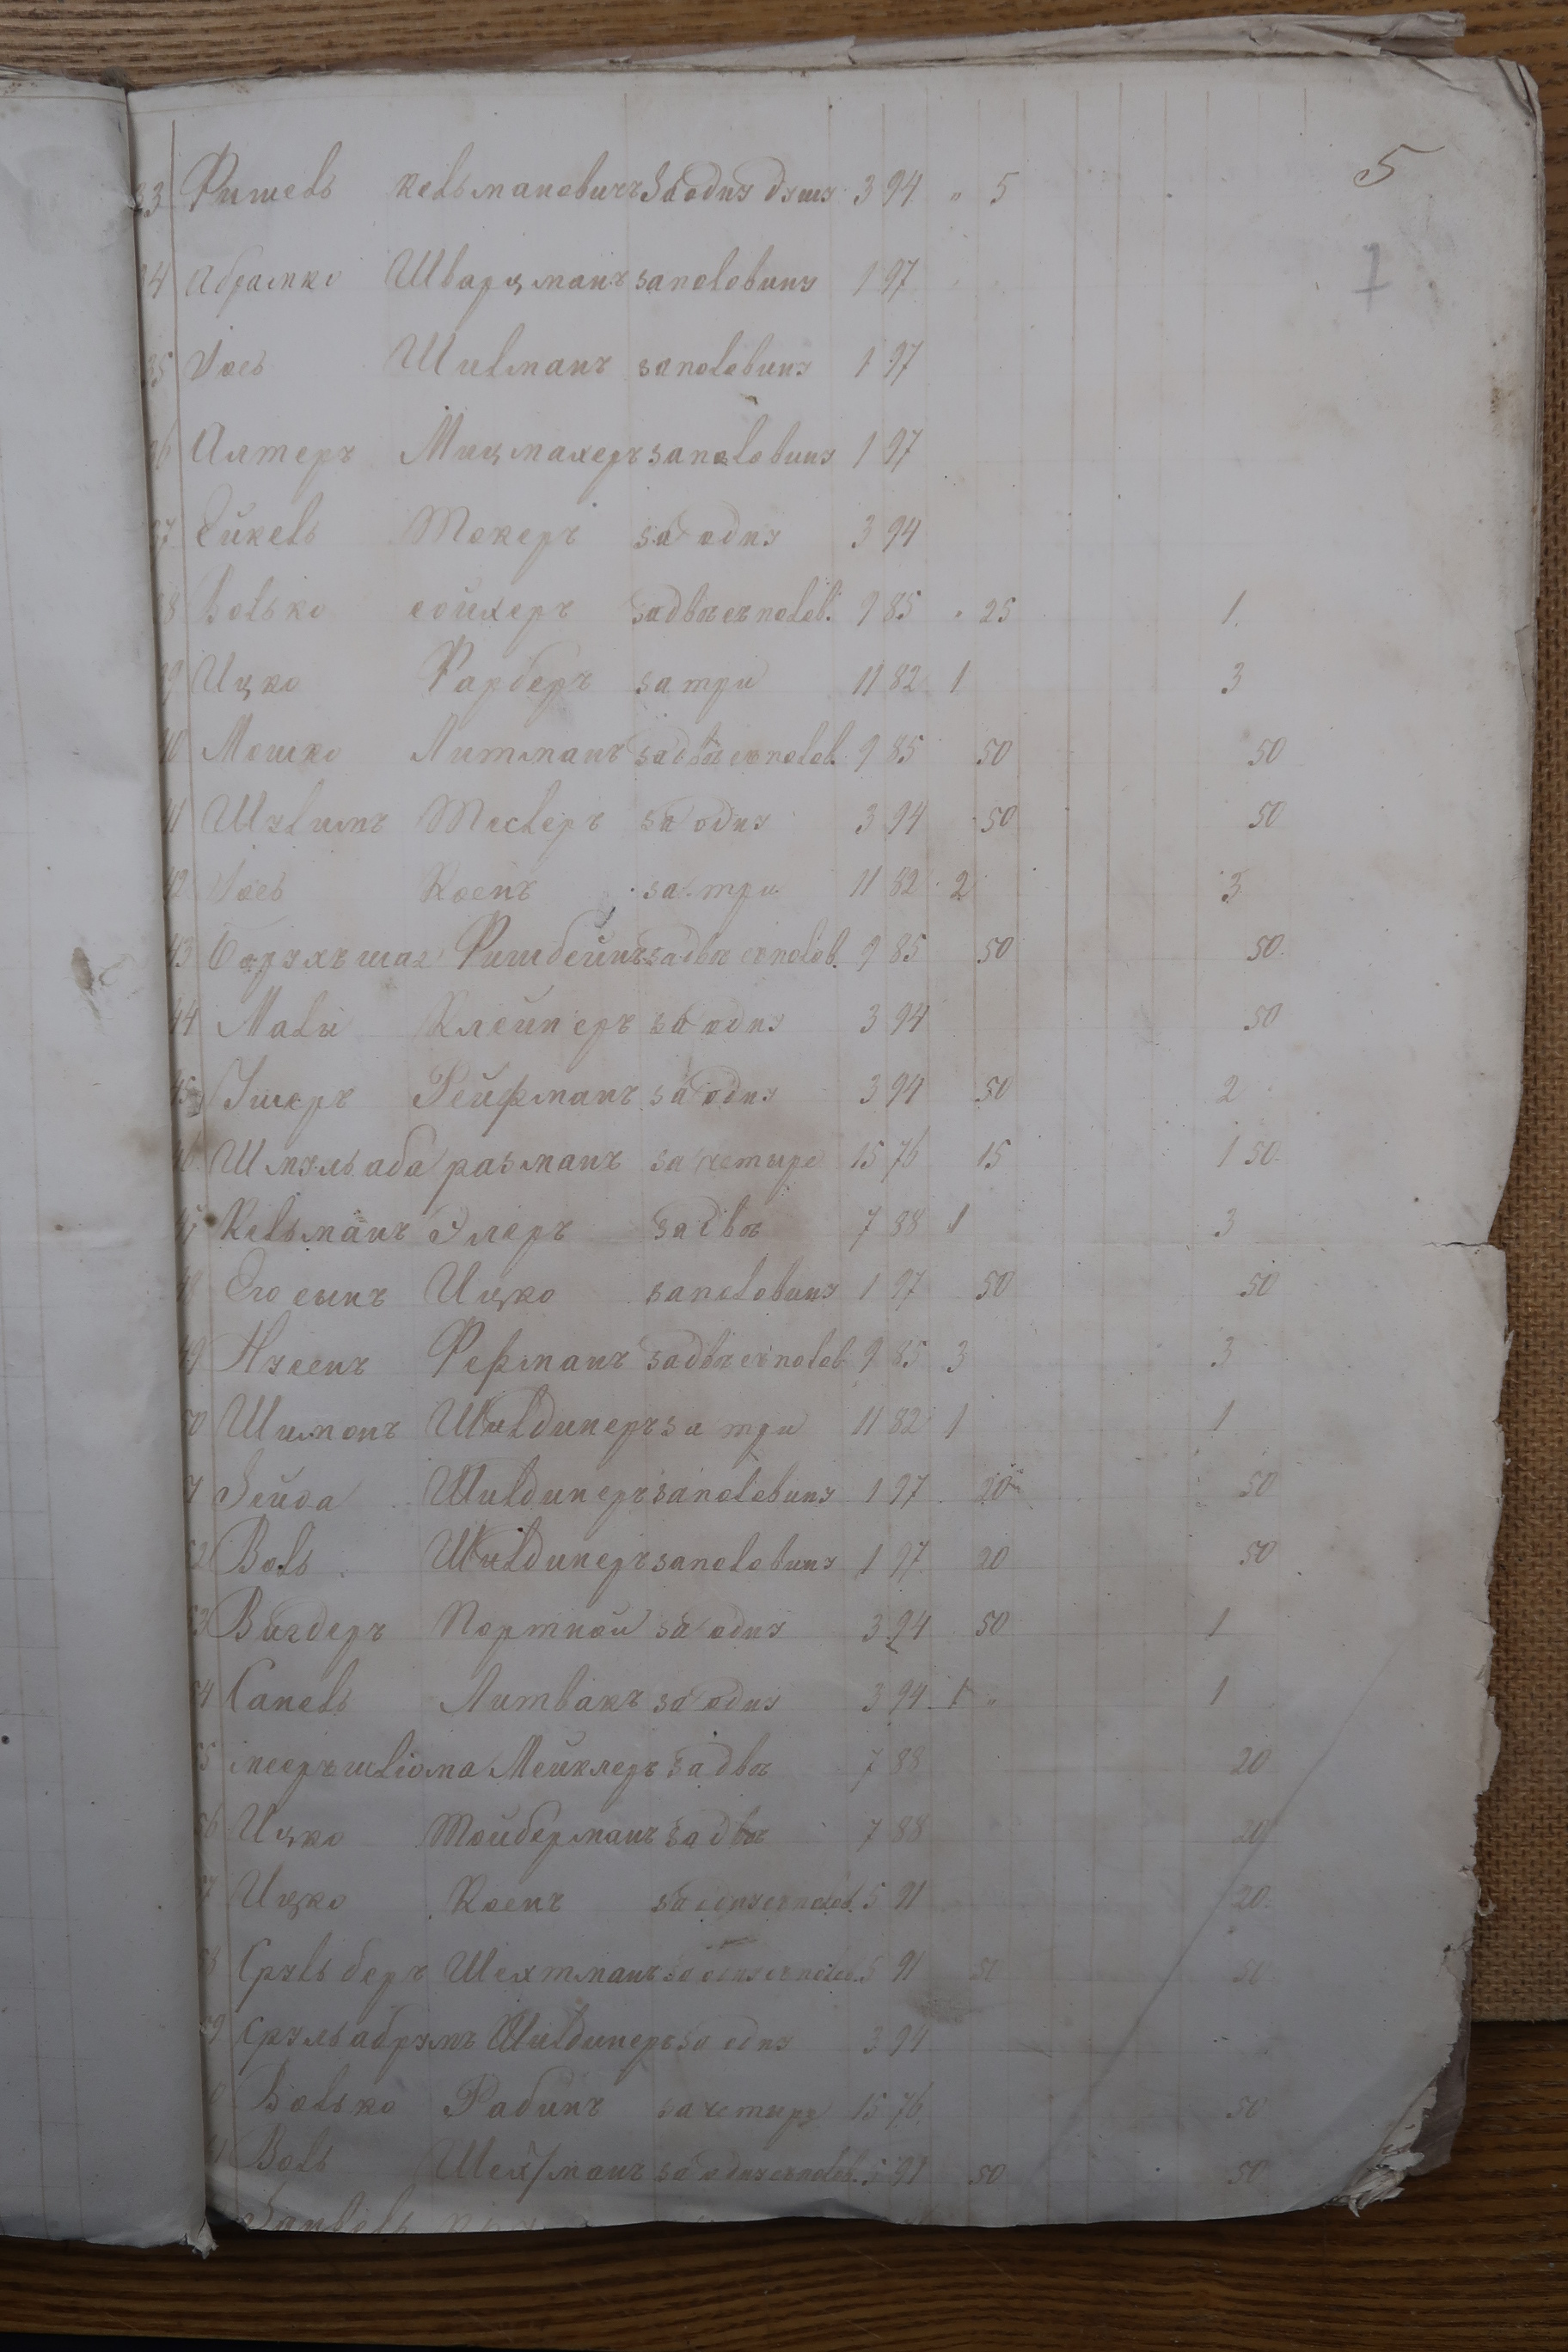 5
7
33 Фишель Кельмановичъ за одну душу 3 94 " 5
34 Абрамко Шварцманъ заполовину 1 97
35 Іось Шилманъ заполовину 1 97
36 Алтеръ Мицмахеръ заполовину 1 97
37 Ейкель Токеръ за одну 3 94
38 Волько сойхеръ задвѣ съ полов. 9 85 " 25 1
39 Ицко Фарберъ за три 11 82 1 3
40 Мошко Литманъ задвѣ съ полов. 9 85 50 50
41 Шулимъ Теслеръ за одну 3 94 50 50
42 Іось Коенъ за три 11 82 2 3
43 Борухъ шая Фишбейнъ задвѣ съ полов. 9 85 50 50
44 Малы Клейнеръ за одну 3 94 50
45 Ушеръ Рейфманъ за одну 3 94 50 2
46 Шмуль аба разманъ за четыре 15 76 15 1 50
47 Кельманъ Элеръ за двѣ 7 88 1 3
48 Его сынъ Ицко заполовину 1 97 50 50
49 Нусенъ Фефманъ задвѣ съ полов 9 85 3 3
50 Шимонъ Шилдинеръ за три 11 82 1 1
Зейда Шилдинеръ заполовину 1 97 20 50
52 Воль Шилдинеръ заполовину 1 97 20 50
53 Вигдеръ Портной за одну 3 94 50 1
54 Санель Литвакъ за одну 3 94 1 " 1
55 шліома Мейклеръ за двѣ 7 88 20
56 Ицко Тойберманъ за двѣ 7 88 20
57 Ицко Коенъ за одну съ полов. 5 91 20
58 Сруль беръ Шехтманъ за одну съ полов. 5 91 50 50
59 Сруль абрумъ Шилдинеръ за одну 3 94
Волько Рабинъ за четыре 15 76 50
Воль за одну съ полов. 5 91 50 50